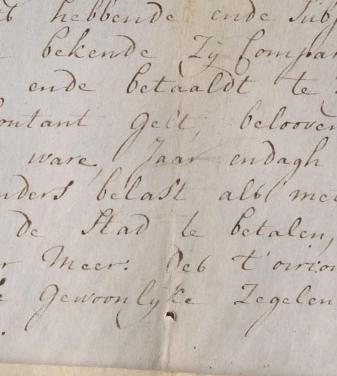 hebbende ende Sub
bekende Zij Compar
ende betaaldt te
ontant gelt, belooven
ware, Jaar endagh
nders belast als mee
de Stad te betalen,
r Meer: Des t'oircon
e gewoonlijke Zegelen